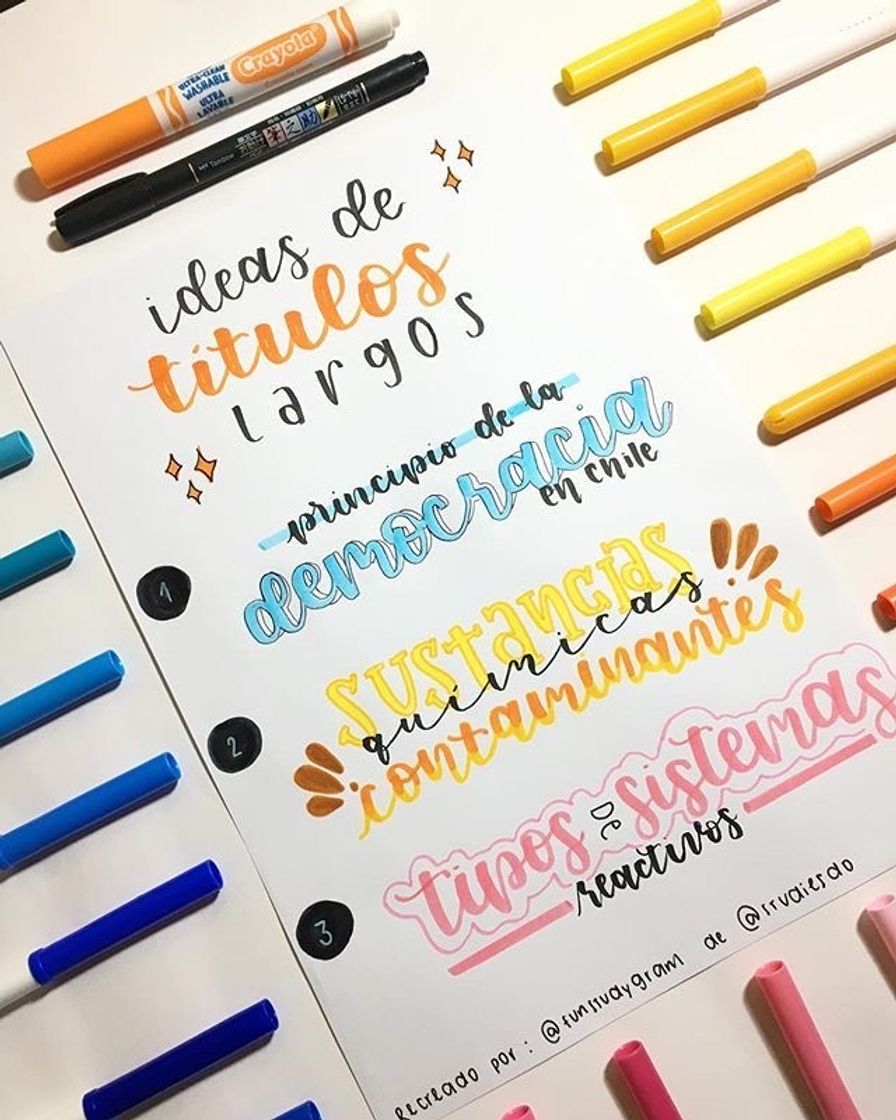 ULTRA-CLEAN
WASHABLE
ULTRA
LAVABLE
Crayola
Tombow
ideas de
títulos
largos
1
principio de la
democracia
en chile
2
sustancias
químicas
contaminantes
3
tipos DE sistemas
reactivos
Recreado por: @funstudygram de @studiesdo